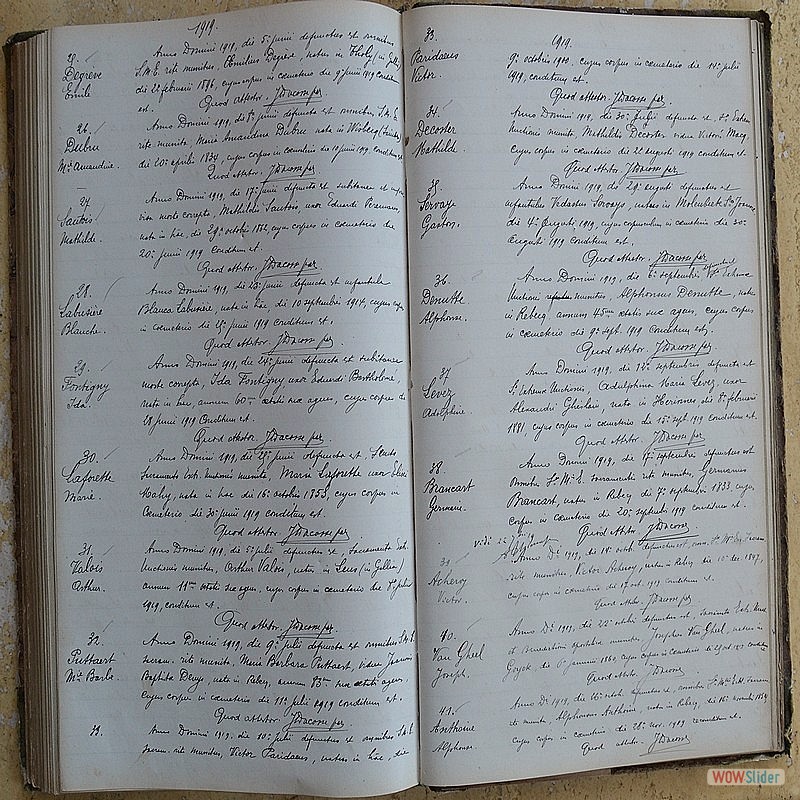 1919.
25.
Degrève
Emile
Anno Domini 1919, die 5ª junii defunctus est omnibus
S.M.E. rite munitus, natus in
die 22 februarii 1896, cujus corpus in cœmeterio die 9ª junii 1919 conditum
est. Quod attestor. J Dacosse par.
26.
Dubru
Mie Amandine.
Anno Domini 1919, die 8ª junii defuncta est omnibus S.M.E.
rite munita, Maria Amandina Dubru nata in
die 20ª aprilis 1834, cujus corpus in cœmeterio die 10 junii 1919, conditum est.
Quod attestor. J Dacosse par
27.
Sautois
Mathilde.
Anno Domini 1919, die 17ª junii defuncta est subitanea et
morte correpta, Mathildis Sautois, uxor Eduardi
nata in hac, die 29ª octobris cujus corpus in cœmeterio die
20ª junii 1919 conditum est.
Quod attestor. J Dacosse par.
28.
Labusière
Blanche.
Anno Domini 1919, die 23ª junii defuncta est infantula
Blanca Labusière, nata in hac die 10 septembris 1914, cujus corpus
in cœmeterio die 25ª junii 1919 conditum est.
Quod attestor. J Dacosse par.
29.
Fontigny
Ida.
Anno Domini 1919, die 24ª junii defuncta est subitanea
morte correpta, Ida Fontigny uxor Eduardi Bartholomé,
nata in hac, annum 60um ætatis suæ agens, cujus corpus die
28 junii 1919 conditum est.
Quod attestor. J Dacosse par
30.
Laforette
Marie.
Anno Domini 1919, die 28ª junii defuncta est, Sancto
Sacramento Ext. Unctionis munita, Maria Laforette uxor
nata in hac die 16ª octobris 1853, cujus corpus in
cœmeterio die 30ª junii 1919 conditum est.
Quod attestor. J Dacosse par
31.
Valois
Arthur.
Anno Domini 1919, die 5ª julii defunctus est, Sacramento Ext.
Unctionis munitus, Arthur Valois, natus in Lens (in Gallia)
annum ætatis suæ agens, cujus corpus in cœmeterio die 8ª julii
1919, conditum est.
Quod attestor. J Dacosse par.
32.
Puttaert
Mie Barbe
Anno Domini 1919, die 9ª julii defuncta est omnibus S.M.E.
sacram. rite munita, Maria Barbara Puttaert, vidua Joannis
Baptiste Denys, nata in Rebecq, annum 85um suæ ætatis agens,
cujus corpus in cœmeterio die 11ª julii 1919 conditum est.
Quod attestor J Dacosse par
33.
Anno Domini 1919, die 10ª julii defunctus est omnibus S.M.E.
sacram. rite munitus, Victor Paridaens, natus in hac, die
33.
Paridaens
Victor.
1919.
9ª octobris 1900, cujus corpus in cœmeterio die 14ª julii
1919, conditum est.
Quod attestor. J Dacosse par.
34.
Decoster
Mathilde.
Anno Domini 1919, die 30ª julii defuncta est, Extrem
Unctionis munita, Mathildis Decoster vidua Victoris Macq
cujus corpus in cœmeterio die 2ª augusti 1919 conditum est.
Quod attestor. J Dacosse par.
35.
Servays
Gaston.
Anno Domini 1919, die 29ª augusti defunctus est
infantulus Servays, natus in Molenbeek St Jean,
die 4ª augusti 1919, cujus corpusculum in cœmeterio die 30ª
augusti 1919 conditum est.
Quod attestor. J Dacosse par
36.
Demuthe
Alphonse.
Anno Domini 1919, die 6ª septembris Extremæ
Unctionis munitus, Alphonsus Demuthe, natus
in Rebecq, annum 45um ætatis suæ agens, cujus corpus
in cœmeterio die 9ª sept. 1919 conditum est.
Quod attestor. J Dacosse par.
37
Levez
Adolphine.
Anno Domini 1919, die 12ª septembris defuncta est
Extremæ Unctionis, Adolphina Maria Levez, uxor
Alexandri Ghislain, nata in Herinnes die 8ª februarii
1881, cujus corpus in cœmeterio die 15ª sept. 1919 conditum est.
Quod attestor. J Dacosse par
38.
Brancart
Germain.
Anno Domini 1919, die 17ª septembris defunctus est
omnibus St. M. E. sacramentis rite munitus, Germanus
Brancart, natus in Rebecq die 7ª septembris 1833, cujus
corpus in cœmeterio die 20ª septembris 1919 conditum est.
Quod attestor J Dacosse
39.
Acheroy
Victor.
Anno Di 1919, die 14ª oct. defunctus est,
rite munitus, Victor Acheroy, natus in Rebecq die 10ª dec 1847,
cujus corpus in cœmeterio die 17 oct. 1919 conditum est.
Quod attestor. J Dacosse par
40.
Van Gheel
Joseph.
Anno Di 1919, die 22ª octobris defunctus est, Sacramento Extr. Unct.
et Benedictione apostolica munitus, Josephus Van Gheel, natus in
Gooyck, die 6ª januarii 1860 cujus corpus in cœmeterio
Quod attestor J Dacosse
41.
Anthoine
Alphonse.
Anno Di 1919, die defunctus est, omnibus St. M. E. Sacram.
rite munitus, Alphonsus Anthoine, natus in Rebecq, die 16ª novembris
cujus corpus in cœmeterio die 28ª nov. 1919 reconditum est.
Quod attestor. J Dacosse
WOWSlider